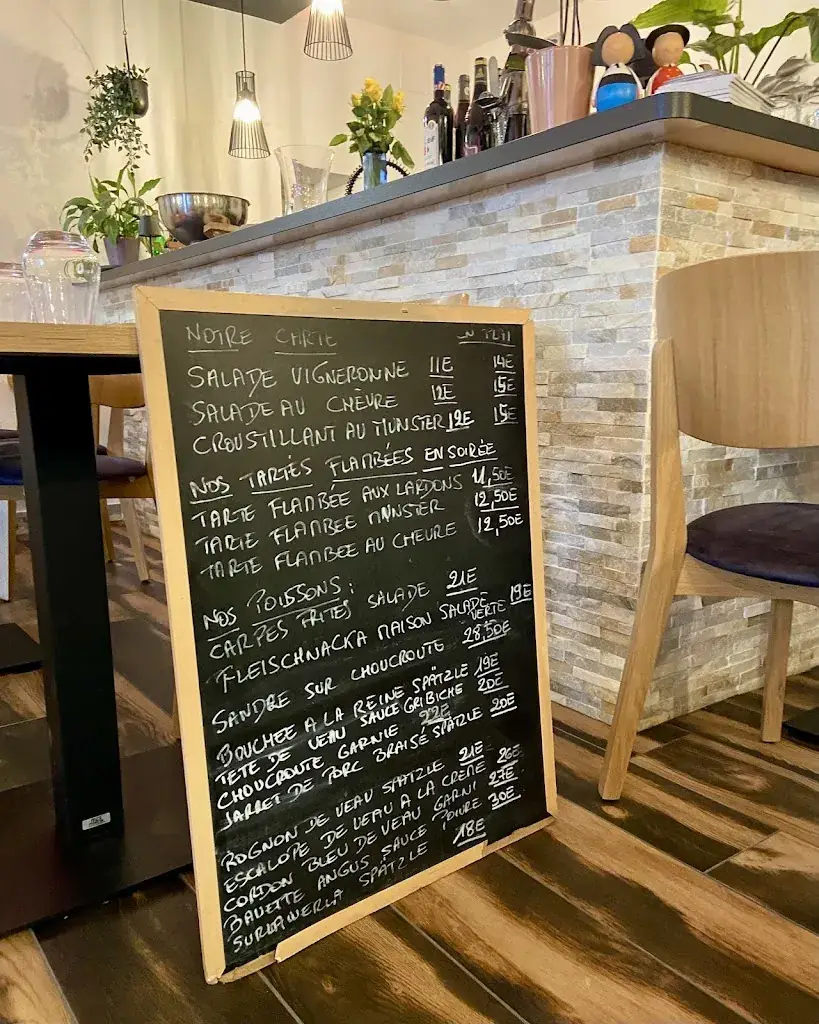 NOTRE CARTE
SALADE VIGNERONNE 11E 14E
SALADE AU CHÈVRE 12E 15E
CROUSTILLANT AU MUNSTER 12E 15E
NOS TARTES FLAMBÉES EN SOIRÉE
TARTE FLAMBÉE AUX LARDONS 11,50E
TARTE FLAMBEE MUNSTER 12,50E
TARTE FLAMBEE AU CHEVRE 12,50E
NOS POISSONS:
CARPES FRITES SALADE 21E
FLEISCHNACKA MAISON SALADE VERTE 19E
SANDRE SUR CHOUCROUTE 28,50E
BOUCHEE A LA REINE SPÄTZLE 19E
TETE DE VEAU SAUCE GRIBICHE 20E
CHOUCROUTE GARNIE 22E
JARRET DE PORC BRAISÉ SPÄTZLE 20E
ROGNON DE VEAU SPÄTZLE 21E
ESCALOPE DE VEAU A LA CREME 26E
CORDON BLEU DE VEAU GARNI 27E
BAVETTE ANGUS SAUCE POIVRE 30E
SURLAWERLA SPÄTZLE 18E